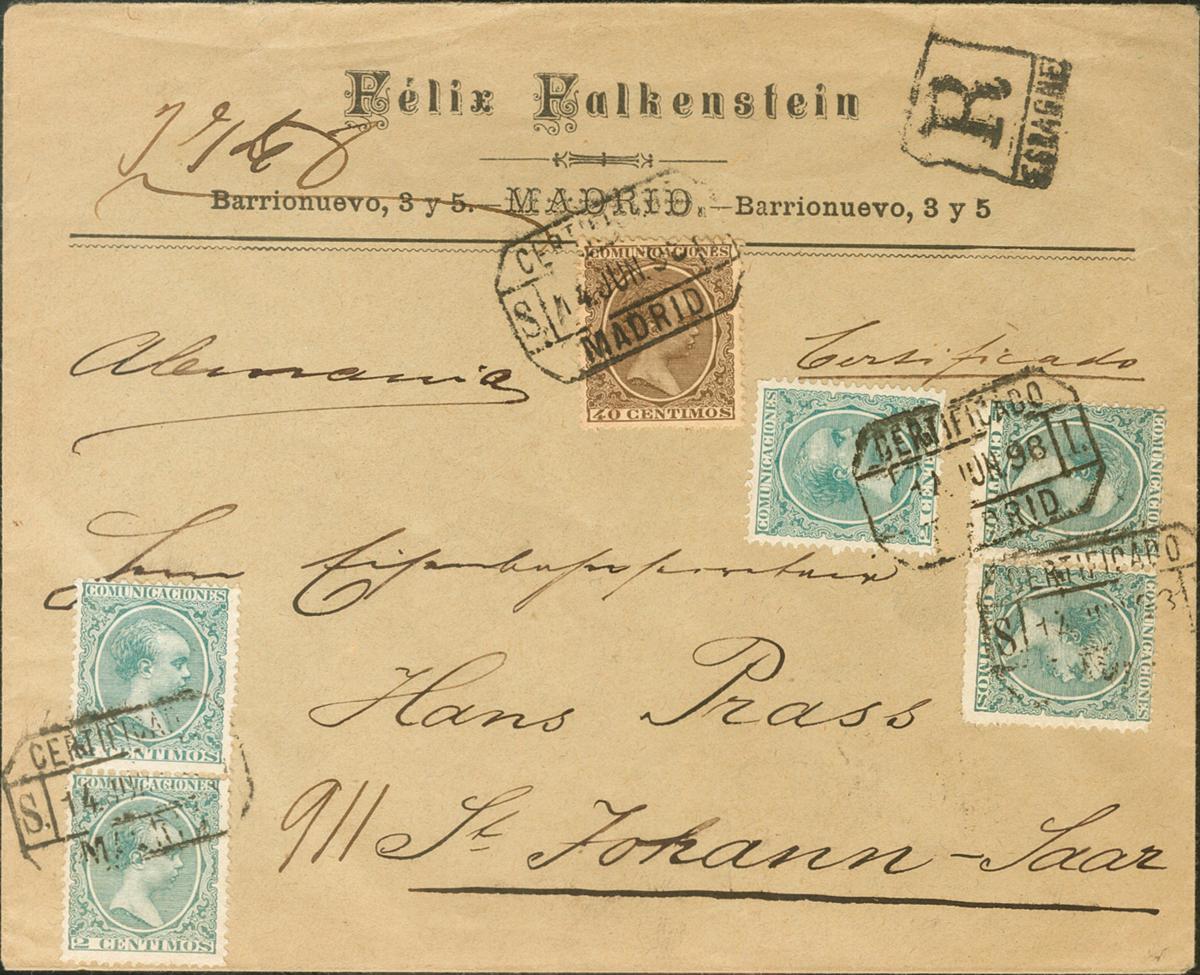 Félix Falkenstein
R
ESPAGNE
Barrionuevo, 3 y 5.—MADRID.—Barrionuevo, 3 y 5
CERTIFICADO
S. 14 JUN. 98
MADRID
COMUNICACIONES
40 CENTIMOS
Alemania
Certificado
COMUNICACIONES
2 CENTIMOS
CERTIFICADO
14 JUN 98 1.
MADRID
COMUNICACIONES
2 CENTIMOS
CERTIFICADO
S. 14 JUN
COMUNICACIONES
2 CENTIMOS
Herrn Eisenbahnsecretair
Hans Prass
911 St. Johann-Saar
COMUNICACIONES
2 CENTIMOS
CERTIFICADO
S. 14 JUN
MADRID
COMUNICACIONES
2 CENTIMOS